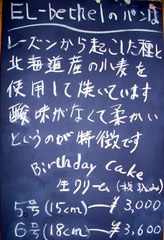 EL-bethelのパンは
レーズンから起こした種と
北海道産の小麦を
使用して焼いています
酸味がなくて柔かい
というのが特徴です
Birthday Cake
生クリーム(税込み)
5号(15cm)—¥3,000
6号(18cm)—¥3,600